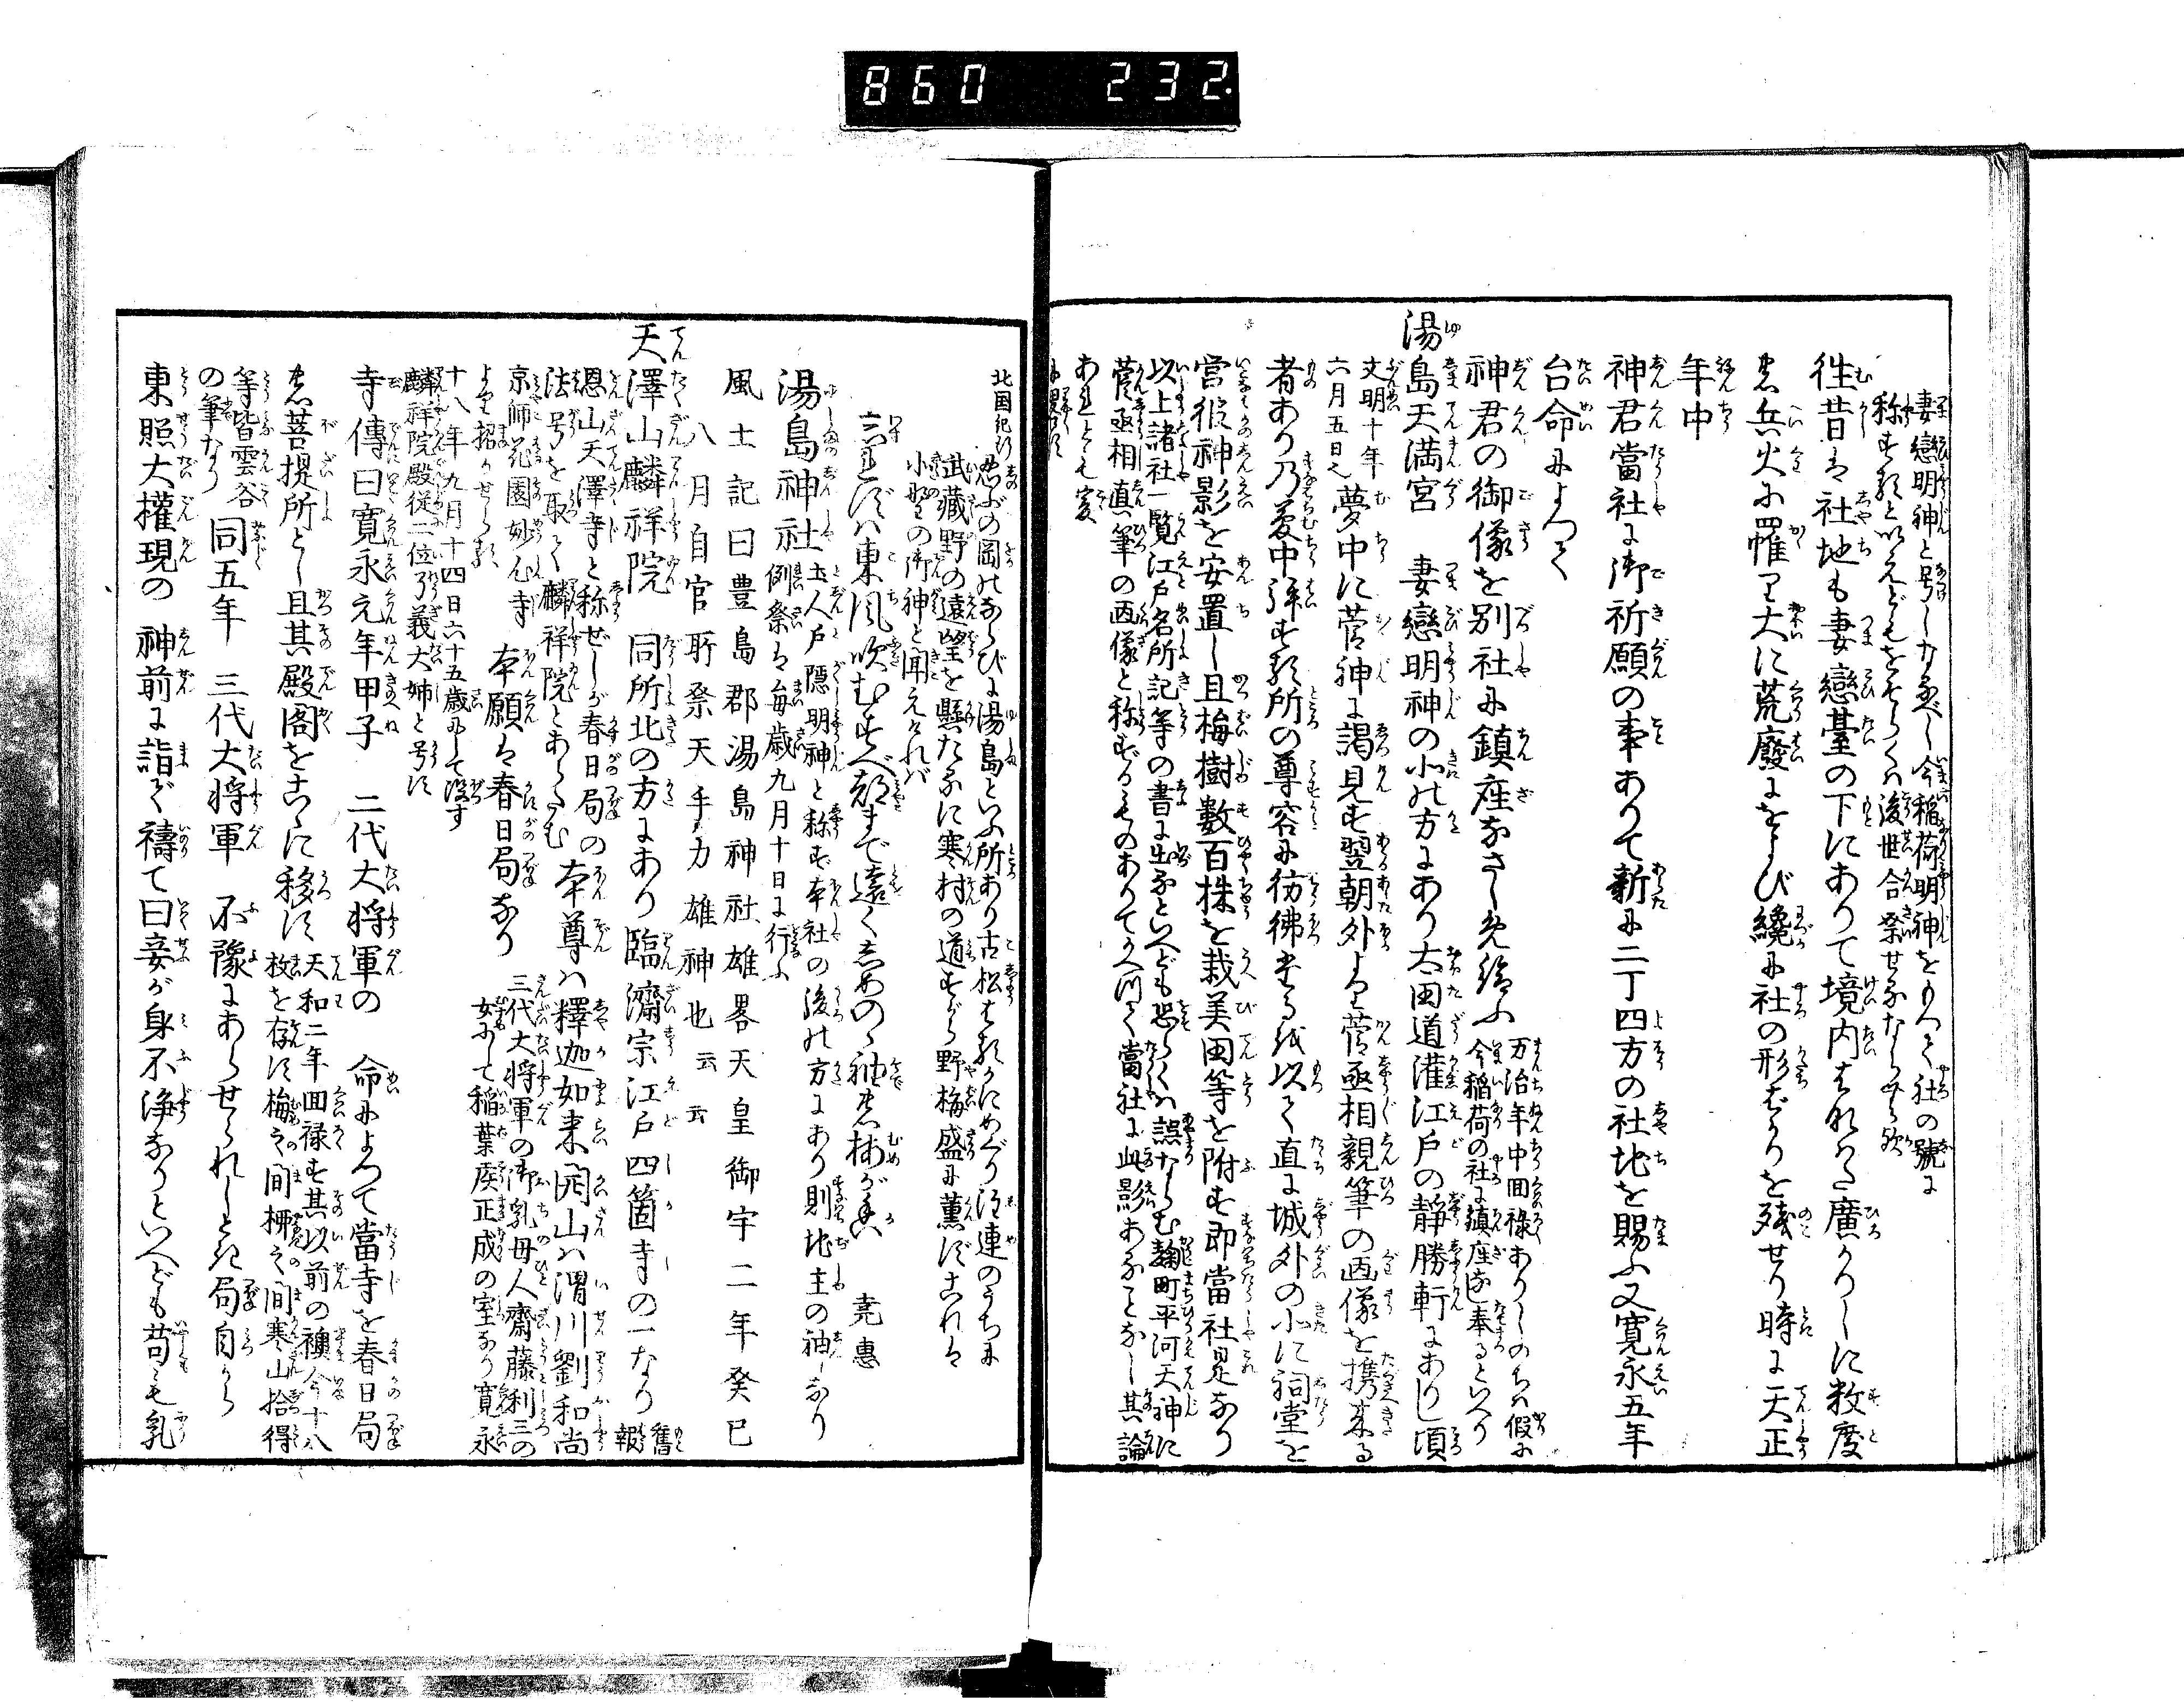 860 232.
妻戀明神と号しなるべし今稲荷明神をもつて社の號に
称する
往昔は社地も妻戀臺の下にありて境内も
廣かりしに数度
の兵火に罹り大に荒廢におよび纔に社の形ばかりを残せり時に天正
年中
神君當社に御祈願の事ありて新に二丁四方の社地を賜ふ又寛永五年
台命によつて
神君の御像を別社に鎮座なさしめ給ふ
万治年中回禄ありしのちは假に
今稲荷の社に鎮座なし奉るといへり
湯島天満宮 妻戀明神の北の方にあり太田道灌江戸の静勝軒にありし頃
文明十年
六月五日也
夢中に菅神に謁見す翌朝外より菅丞相親筆の画像を携来る
者あり乃夢中拝する所の尊容に彷彿たるを以て直に城外の北に祠堂を
営彼神影を安置し且梅樹數百株を栽美田等を附す即當社是なり
以上諸社一覧江戸名所記等の書に出るといへども恐らくは誤ならむ麹町平河天神に
菅丞相真筆の画像と称するものありてかつて當社に此影あることなし其論
あれども実
北国紀行
忍ぶの岡のならびに湯島といふ所あり古松はるかにめぐり注連のうちに
武蔵野の遠望を懸たるに寒村の道すがら野梅盛に薫ず是は
北野の御神と聞えければ
忘れずは東風吹むすべ都まで遠くしめのゝ袖の梅が香 尭惠
湯島神社
土人戸隠明神と称す本社の後の方にあり則地主の神なり
例祭は毎歳九月十日に行ふ
風土記曰豊島郡湯島神社雄畧天皇御宇二年癸巳
八月自官所祭天手力雄神也云云
天澤山麟祥院 同所北の方にあり臨濟宗江戸四箇寺の一なり
舊
報
恩山天澤寺と称せしが春日局の
法号を取て麟祥院とあらたむ
本尊は釋迦如来開山は渭川劉和尚
京師花園妙心寺
より招かせらる
本願は春日局なり
三代大将軍の御乳母人齋藤利三の
女にして稲葉侯正成の室なり寛永
十八年九月十四日六十五歳にして没す
麟祥院殿従二位了義大姉と号す
寺傳曰寛永元年甲子 二代大将軍の 命によつて當寺を春日局
の菩提所とし且其殿閣をこゝに移す
天和二年回禄す其以前の襖今十八
枚を存す梅之間柳之間寒山拾得
等皆雲谷
の筆なり
同五年 三代大将軍 不豫にあらせられしとき局自から
東照大權現の 神前に詣で禱て曰妾が身不浄なりといへども苟も乳